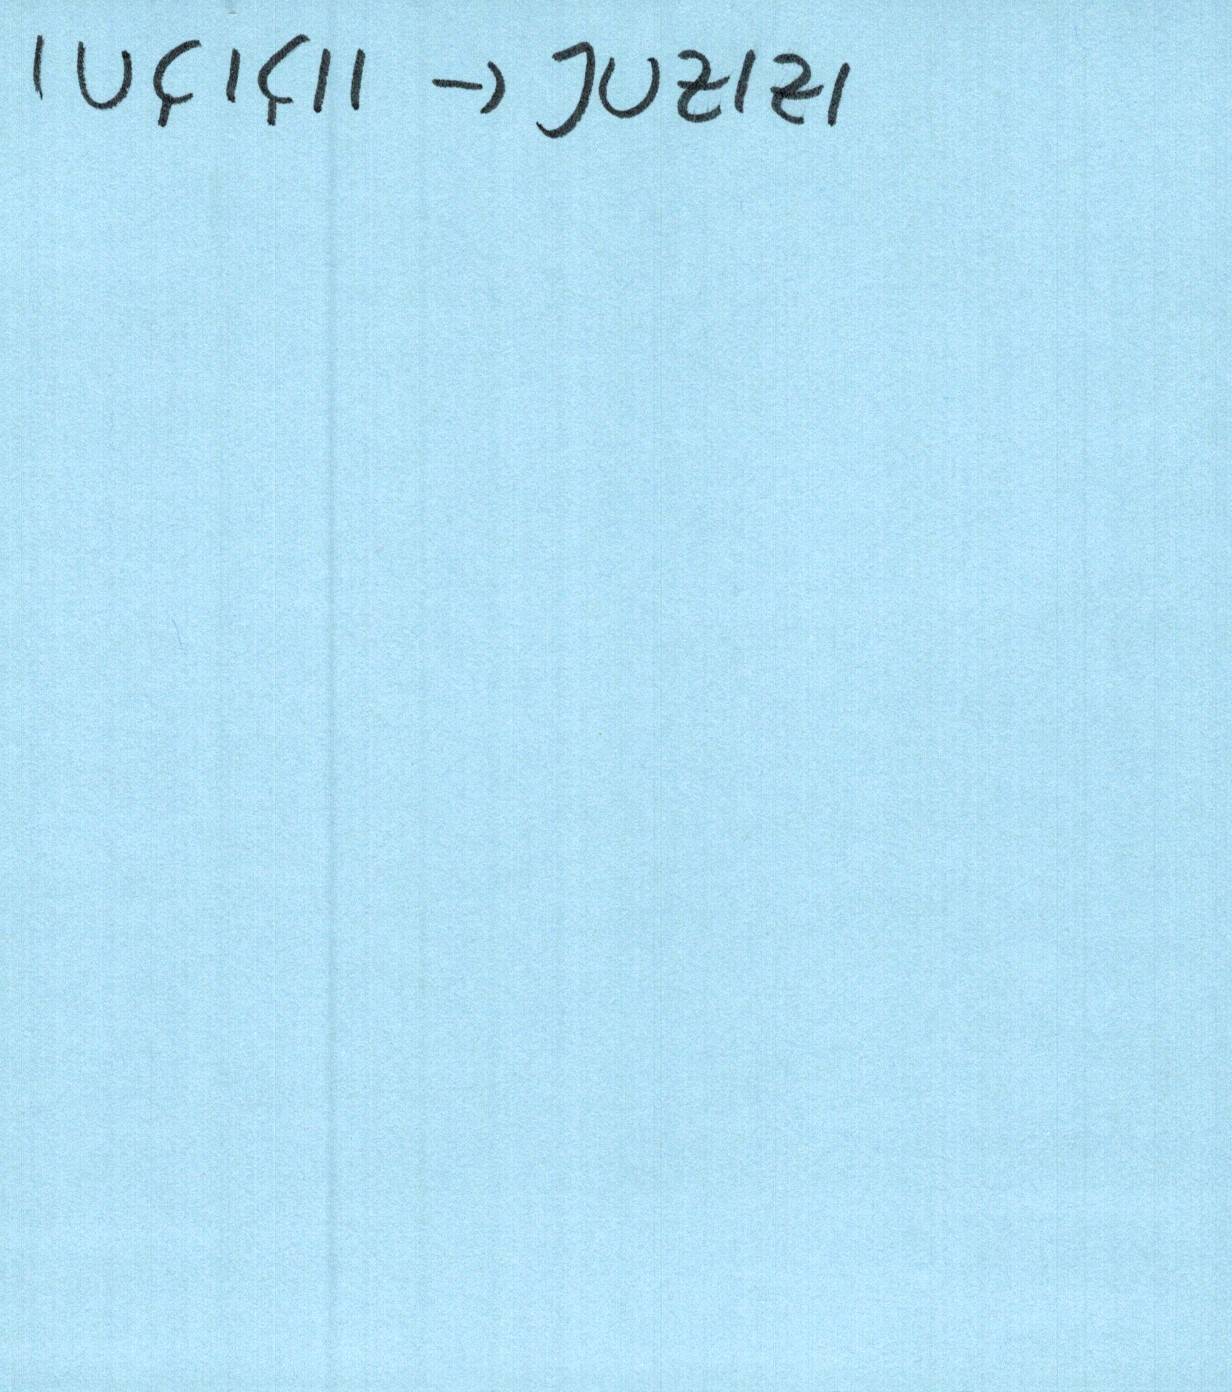 IUÇIÇII → JUZIZI